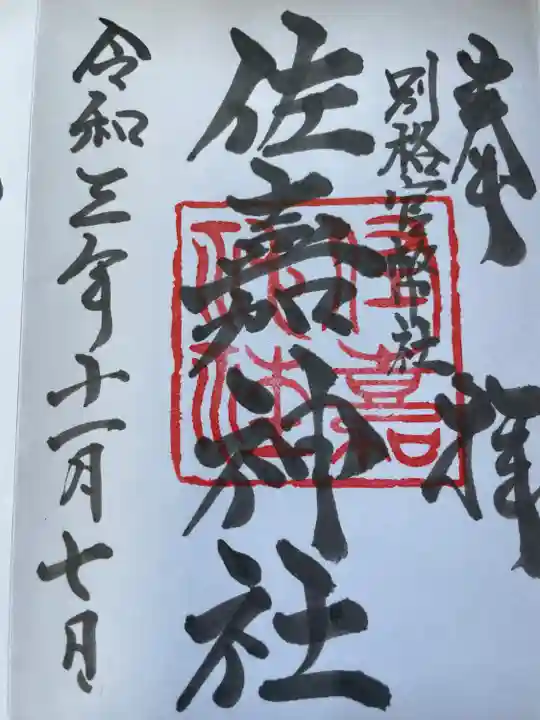 奉拝
別格官幣社
佐嘉神社
令和三年十一月七日
佐嘉神社